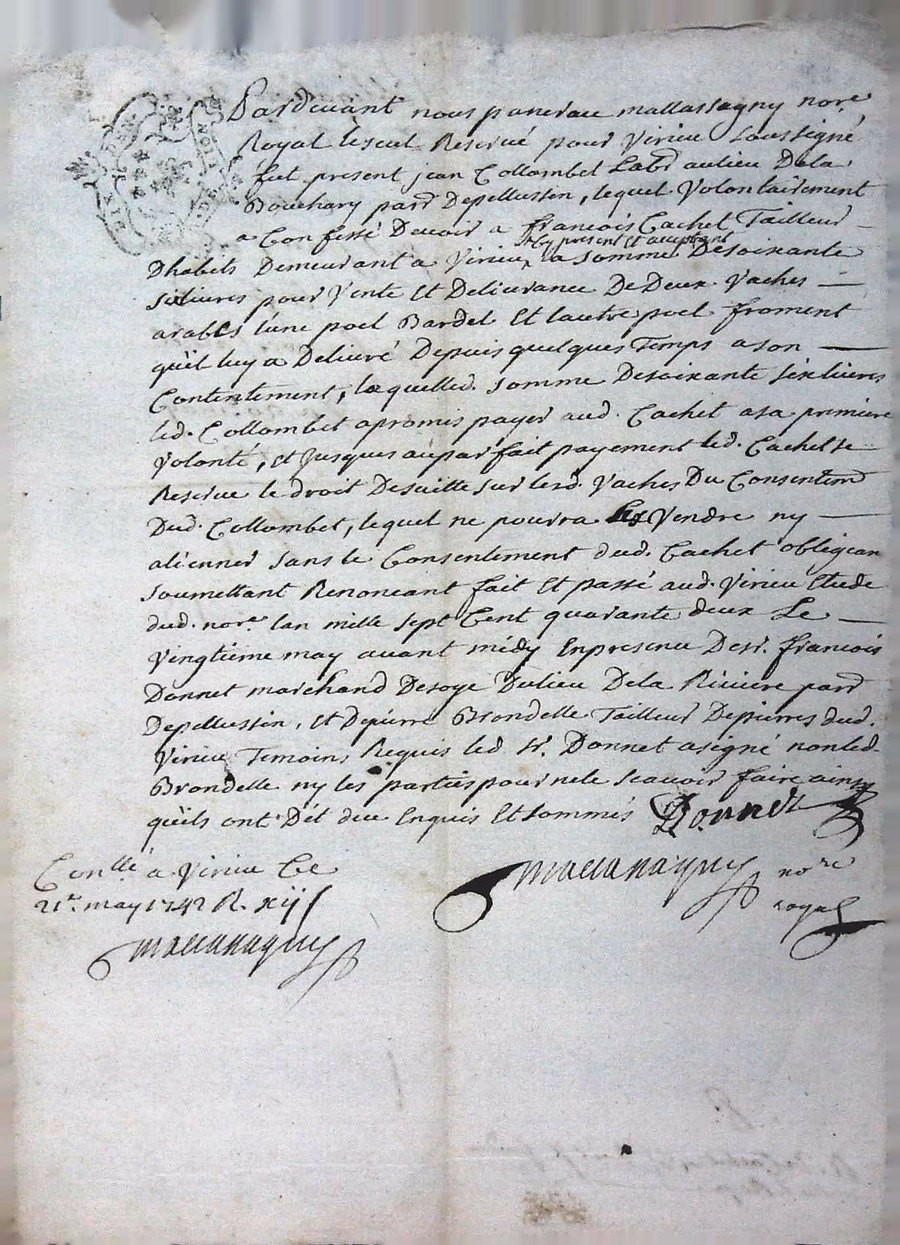 Pardevant nous pancrace mallassagny nore
Royal le seul Reservé pour Virieu Soussigné
fut present jean Collombet Labr au lieu De la
Bouchary parr Depellussin, lequel Volontairement
a Confessé Devoir a francois Cachet Tailleur
icy present et acceptant
Dhabits Demeurant a Virieu, la somme De soixante
six livres pour Vente et Delivrance De Deux Vaches
arables l'une poel Bardel Et lautre poel froment
quil luy a Delivré Depuis quelques Temps a son
Contentement, laquelled. somme De soixante six livres
led. Collombet a promis payer aud. Cachet a sa premiere
Volonté, Et jusques au parfait payement led. Cachet se
Reserve le droit De suitte sur lesd. Vaches Du Consentemt
Dud. Collombet, lequel ne pourra les Vendre ny
alienner sans le Consentement dud. Cachet obligean
soumettant Renoncant fait Et passé aud. Virieu Etude
dud. nore. lan mille sept Cent quarante deux Le
Vingtième may avant midy En presence De sr. francois
Donnet marchand De soye Du lieu De la Riviere parr
Depellussin, Et De pierre Brondelle Tailleur De pierres dud.
Virieu Temoins Requis led. sr. Donnet a signé non led.
Brondelle ny les parties pour ne le scavoir faire ainsy
quils ont Dit due Enquis Et sommés Donnet
Conllé a Virieu Ce
21e. may 1742 R. xij s
nore
royal